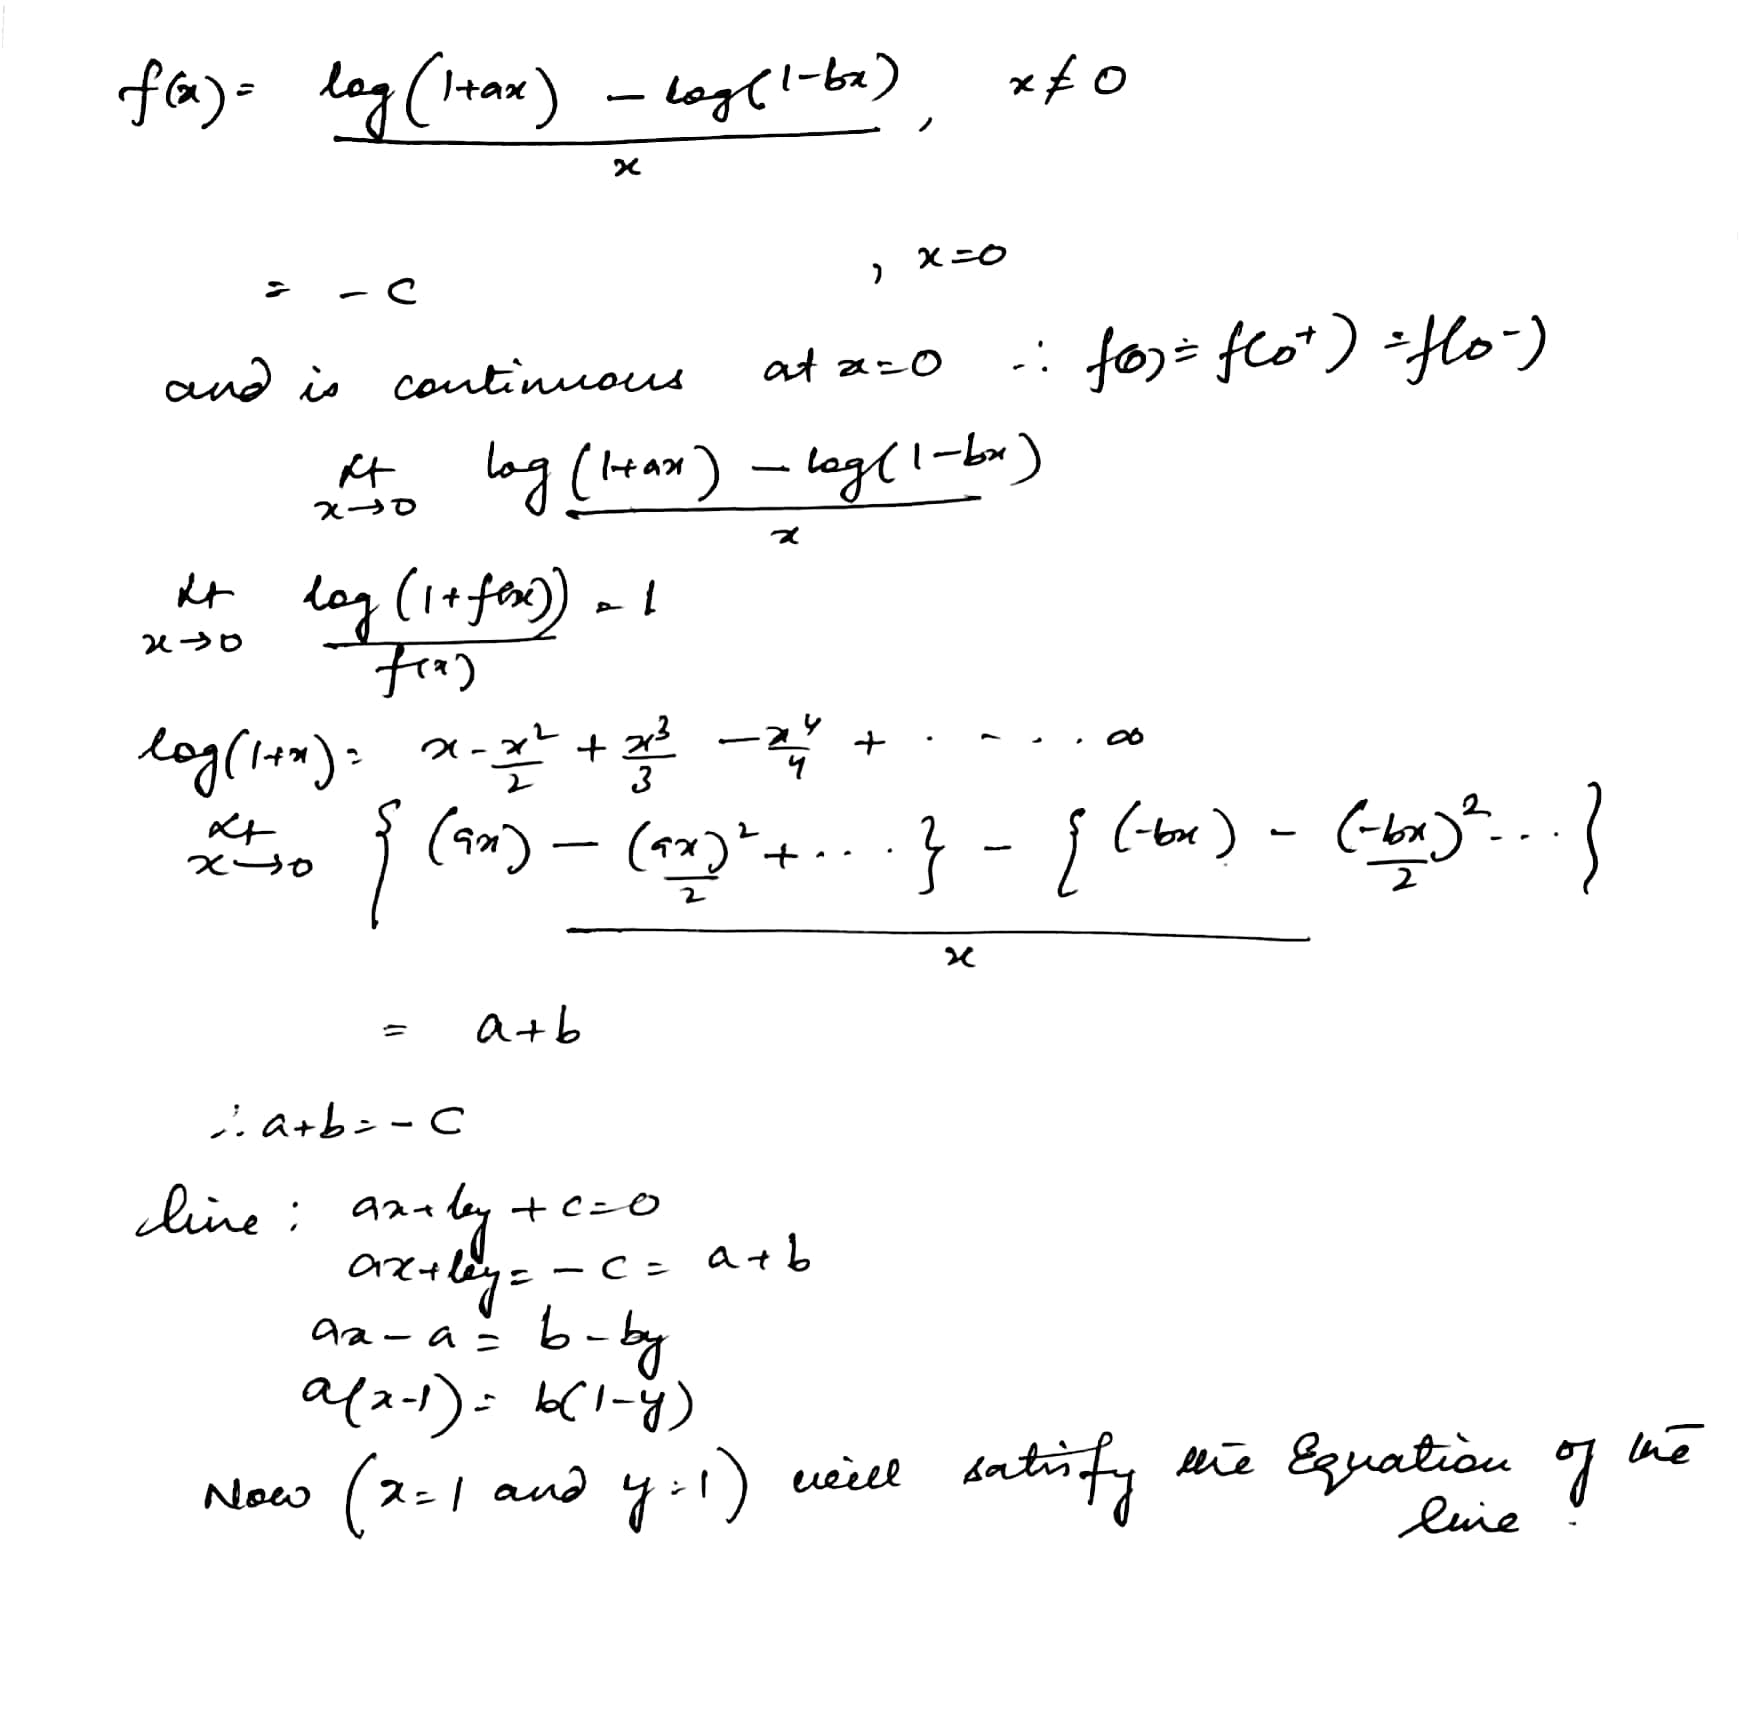 f(x) = log(1+ax) - log(1-bx) , x ≠ 0
x
= -c , x=0
and is continuous at x=0 ∴ f(0) = f(0⁺) = f(0⁻)
Lt log(1+ax) - log(1-bx)
x→0 x
Lt log(1+f(x)) = 1
x→0 f(x)
log(1+x) = x - x²/2 + x³/3 - x⁴/4 + . . . . ∞
Lt { (ax) - (ax)²/2 + .... } - { (-bx) - (-bx)²/2 ... }
x→0 x
= a+b
∴ a+b = -c
line : ax+by+c=0
ax+by = -c = a+b
ax-a = b-by
a(x-1) = b(1-y)
Now (x=1 and y=1) will satisfy the Equation of the
line.